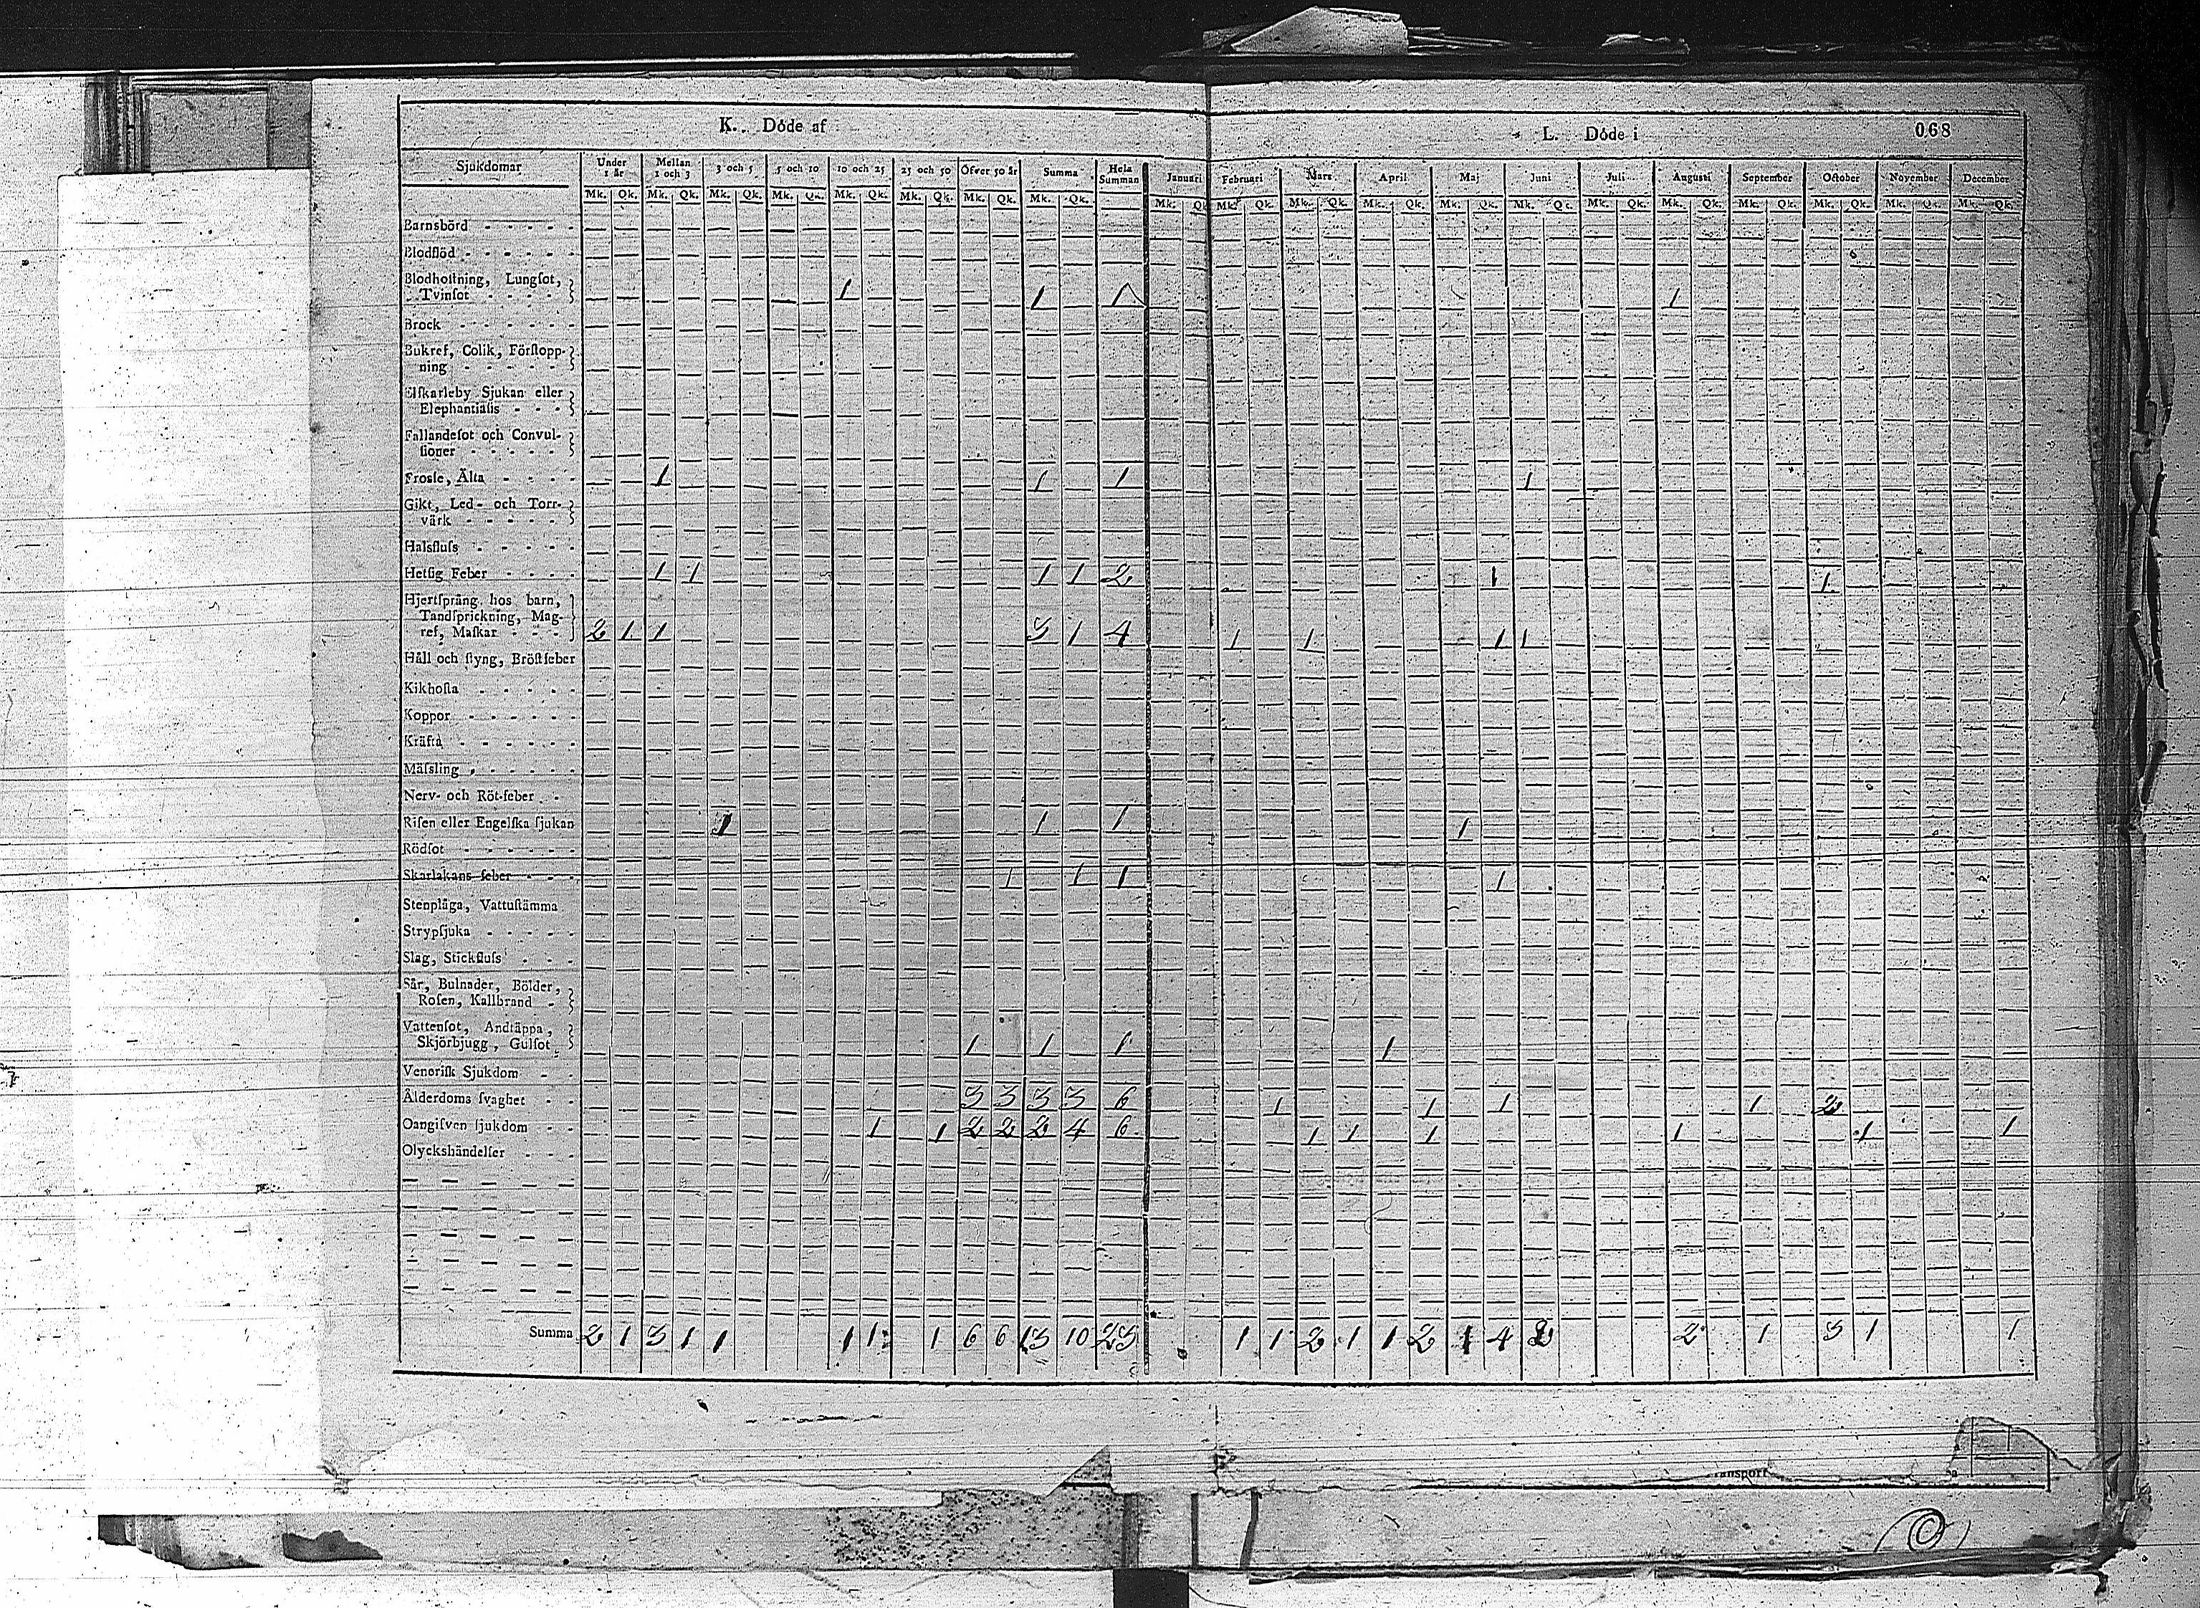 K. Dóde af
L. Dóde i
068
Sjukdomar Under 1 år Mellan 1 och 3 3 och 5 5 och 10 10 och 25 25 och 50 Öfver 50 år Summa Hela Summan Januari Februari Mars April Maj Juni Juli Augusti September October November December
Mk. Qk. Mk. Qk. Mk. Qk. Mk. Qk. Mk. Qk. Mk. Qk. Mk. Qk. Mk. Qk. Mk. Qk. Mk. Qk. Mk. Qk. Mk. Qk. Mk. Qk. Mk. Qk. Mk. Qk. Mk. Qk. Mk. Qk. Mk. Qk. Mk. Qk. Mk. Qk.
Barnsbörd
Blodflöd
Blodhoſtning, Lungſot,
Tvinſot 1 1 1 1
Brock
Bukref, Colik, Förſtopp-
ning
Elfkarleby Sjukan eller
Elephantiaſis
Fallandeſot och Convul-
ſioner
Froſſe, Älta 1 1 1 1
Gikt, Led- och Torr-
värk
Halsfluſs
Hetſig Feber 1 1 1 1 2 1 1
Hjertſprång hos barn,
Tandſprickning, Mag-
ref, Maſkar 2 1 1 3 1 4 1 1 1 1
Håll och ſtyng, Bröſtfeber
Kikhoſta
Koppor
Kräfta
Mäſsling
Nerv- och Röt-feber
Riſen eller Engelſka ſjukan 1 1 1 1
Rödſot
Skarlakans-feber 1 1 1 1
Stenplåga, Vattuſtämma
Strypſjuka
Slag, Stickfluſs
Sår, Bulnader, Bölder,
Roſen, Kallbrand
Vattenſot, Andtäppa,
Skjörbjugg, Gulſot 1 1 1 1
Veneriſk Sjukdom
Ålderdoms ſvaghet 3 3 3 3 6 1 1 1 1 2
Oangifven ſjukdom 1 1 2 2 2 4 6 1 1 1 1 1 1
Olyckshändelſer
Summa 2 1 3 1 1 1 1 1 6 6 13 10 23 1 1 2 1 1 2 1 4 2 2 1 3 1 1